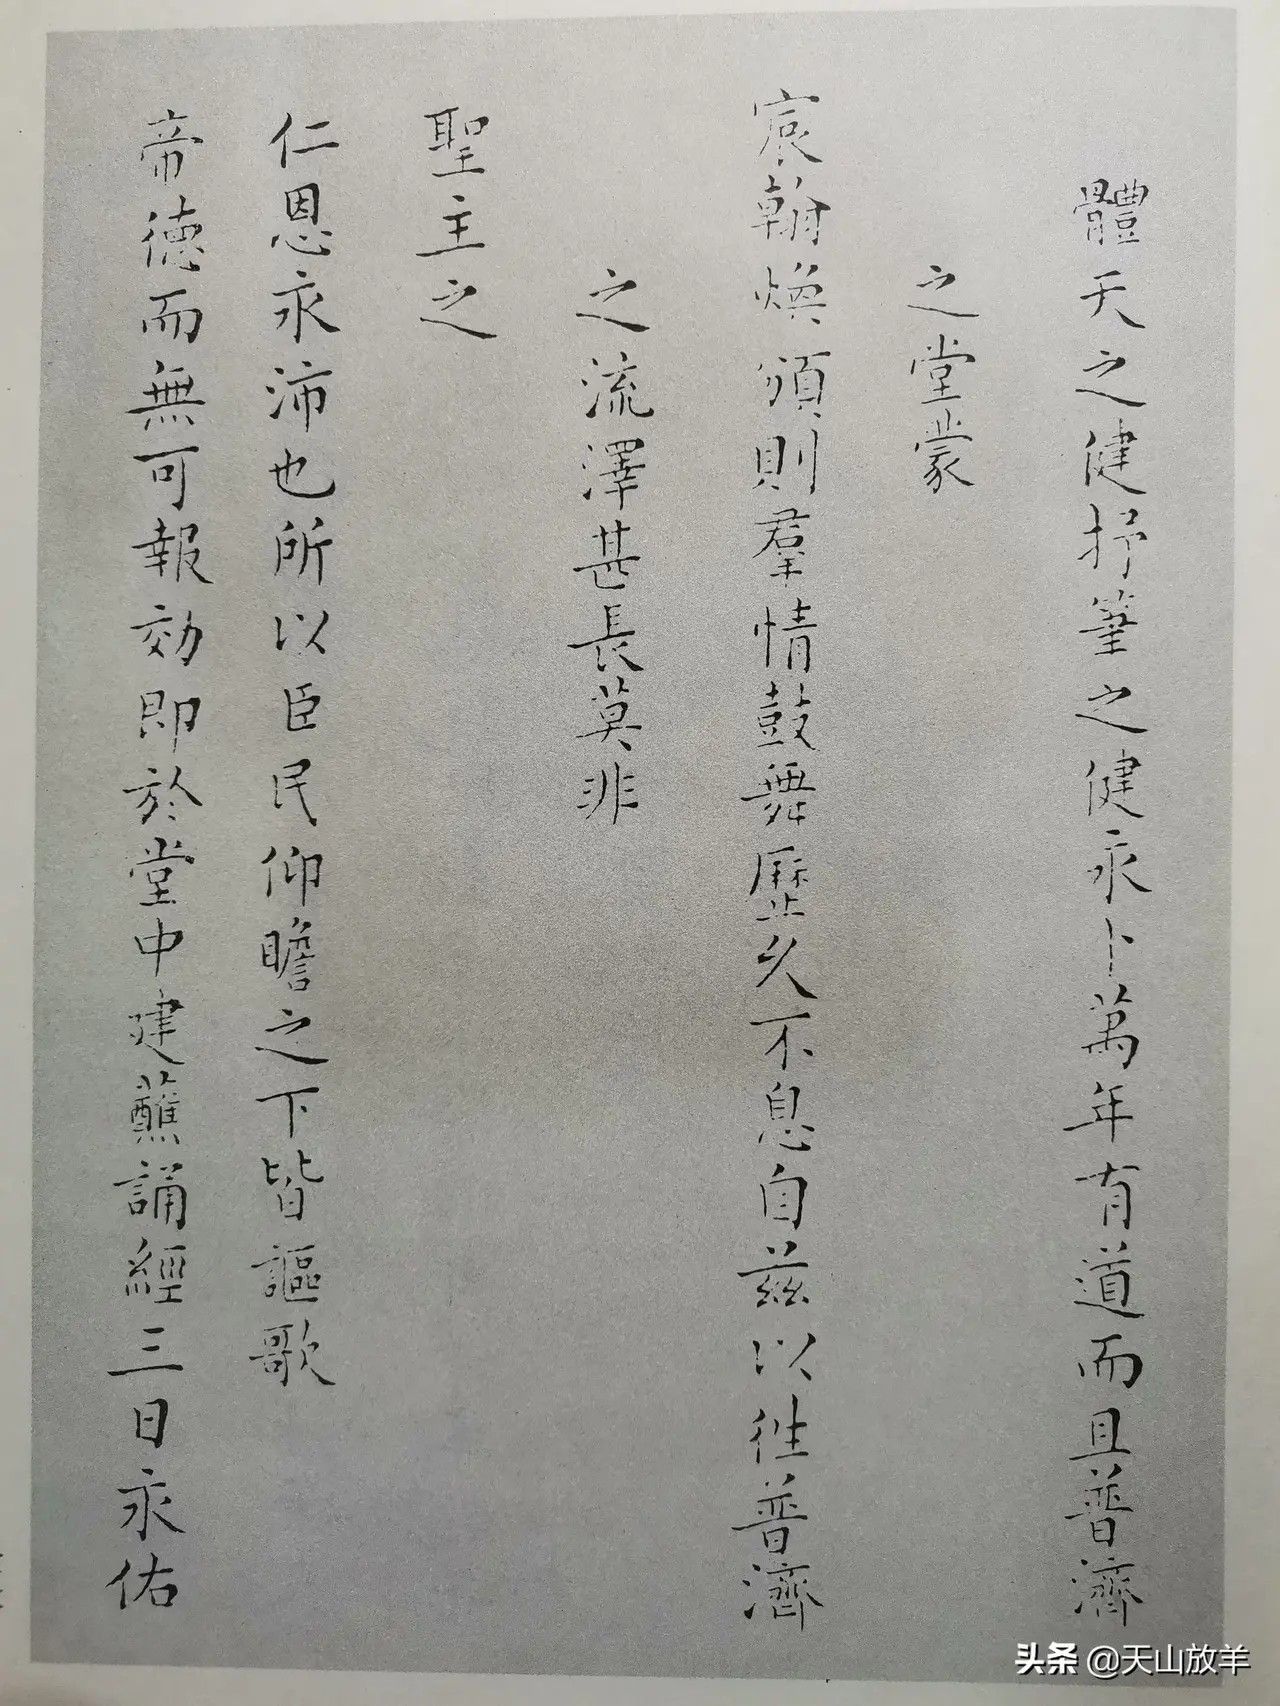 體天之健抒筆之健永卜萬年有道而且普濟
之堂蒙
宸翰煥頒則羣情鼓舞歷久不息自兹以往普濟
之流澤甚長莫非
聖主之
仁恩永沛也所以臣民仰瞻之下皆謳歌
帝德而無可報効即於堂中建蘸誦經三日永佑
头条 @天山放羊